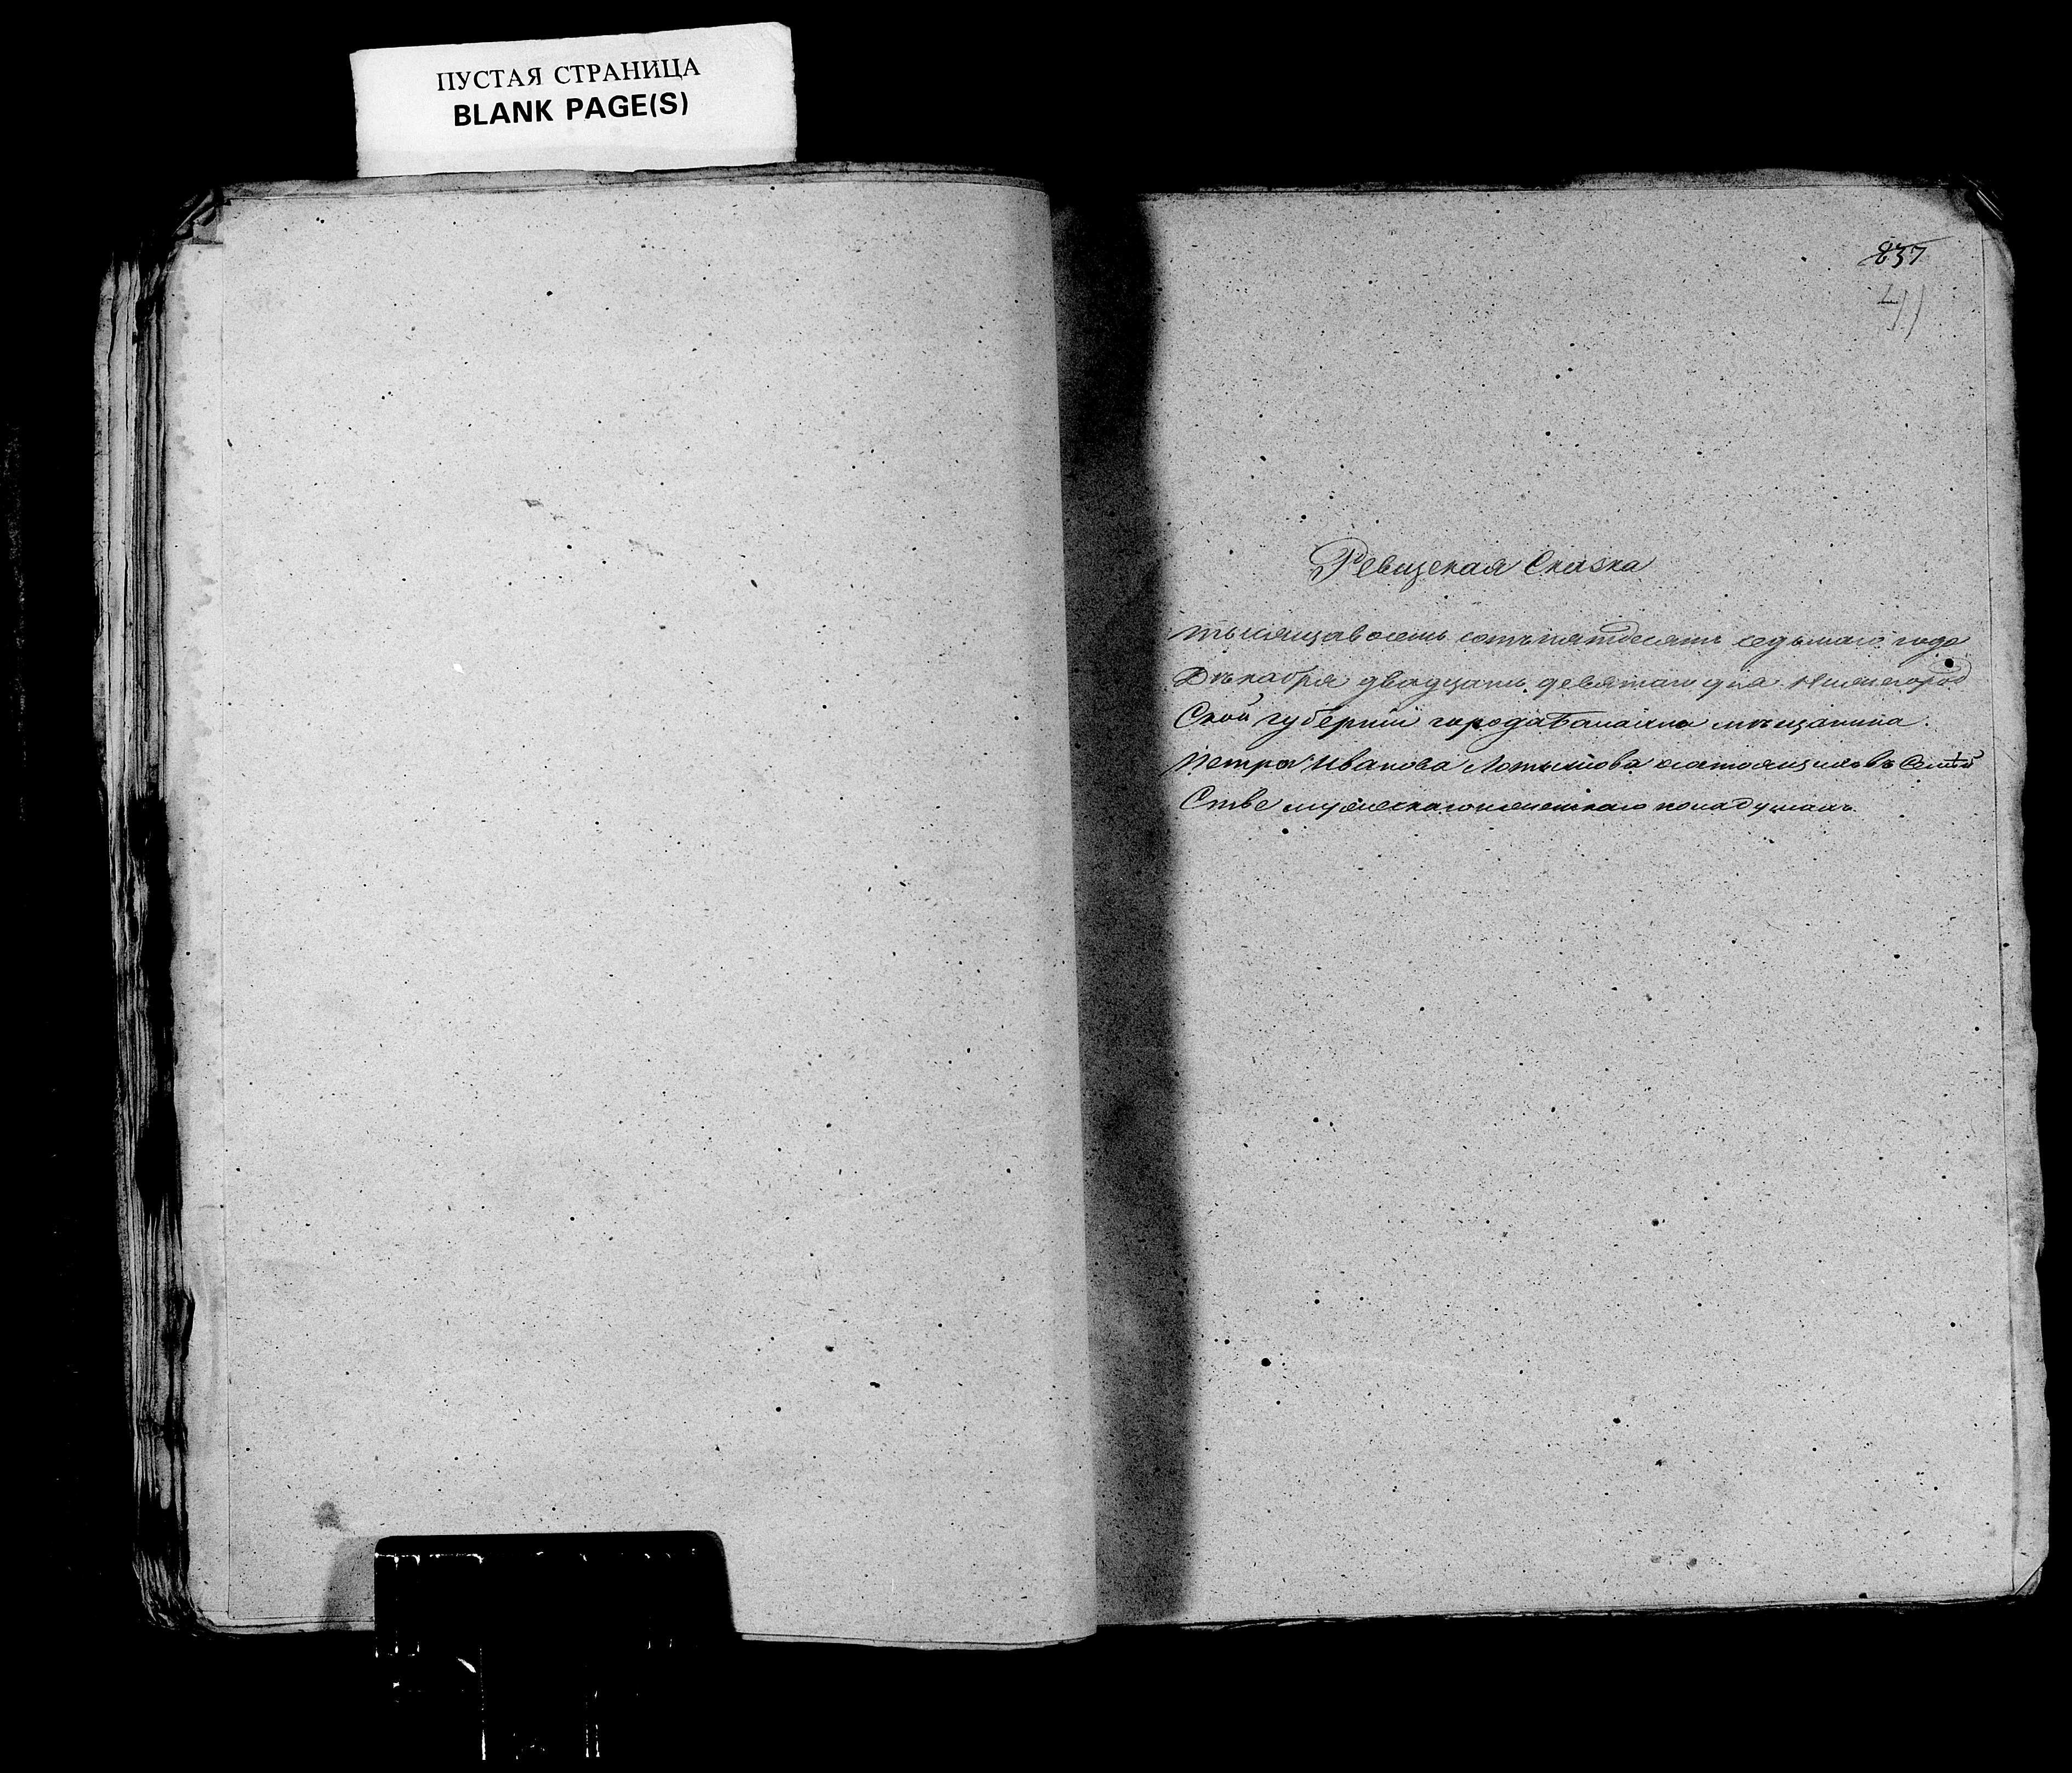 ПУСТАЯ СТРАНИЦА
BLANK PAGE(S)
837
41
Ревизская Сказка
тысяща восемь сотъ пятдесятъ седьмаго года
Декабря двадцать девятаго дня Нижегород
Ской губернии города Балахна мѣщанина
Петра Иванова состоящимъ въ Семей
Стве мужескаго и женскаго пола душамъ.